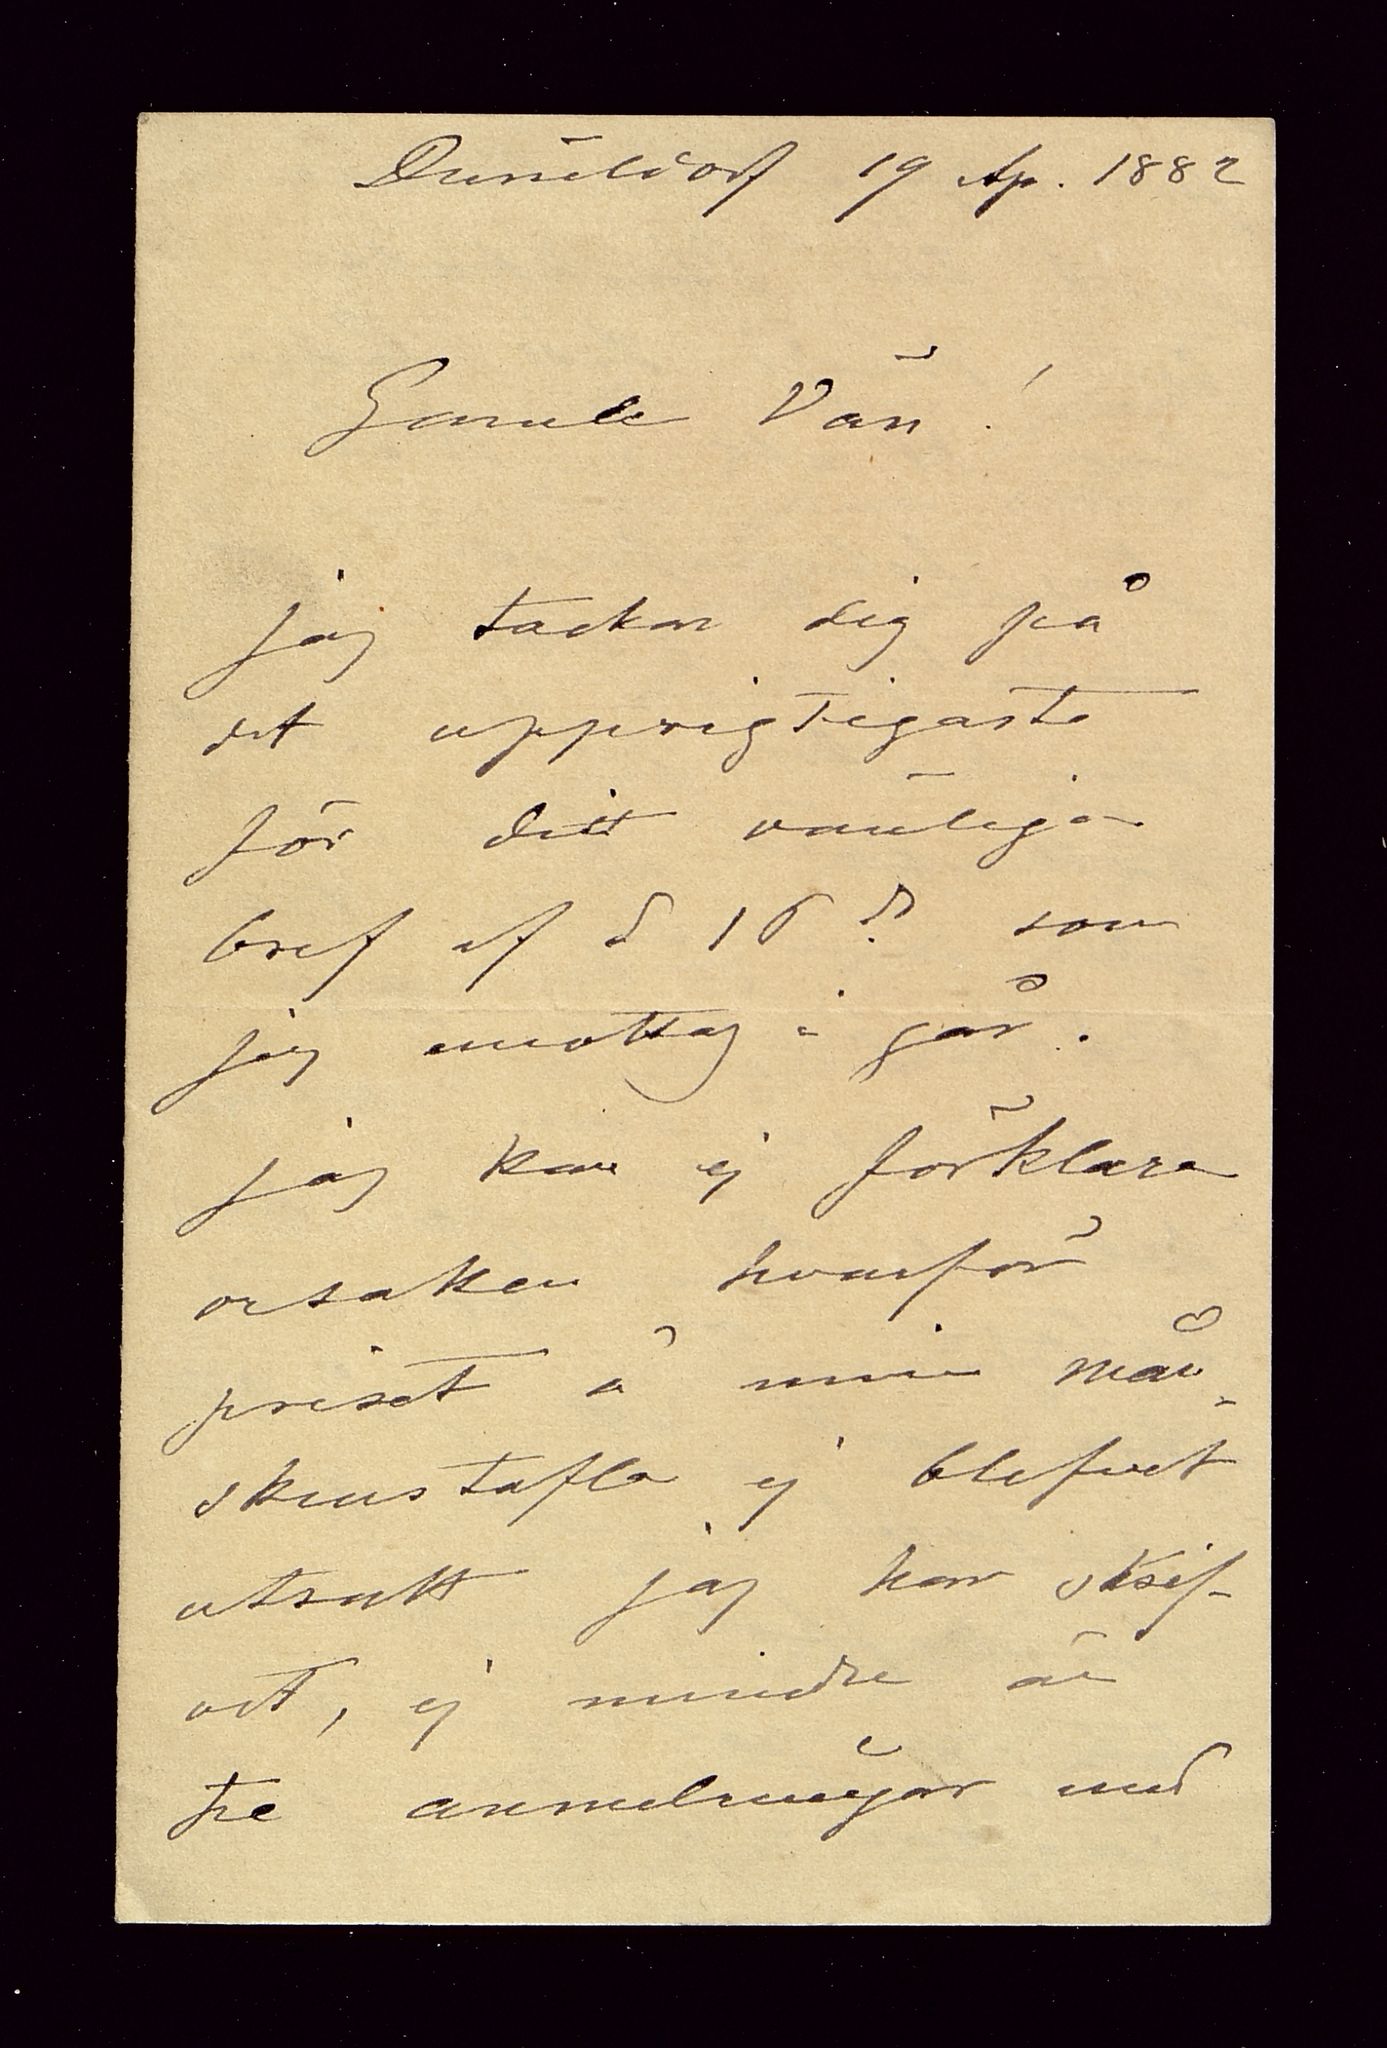 Düsseldorf 19 Ap. 1882
Gamle Vän!
jag tackar dig på
det upprigtigaste
för ditt vänliga
bref af d 16 ds som
jag mottag i går.
jag kan ej förklara
orsaken hvarför
priset å min mån-
skenstafla ej blefvet
utsatt jag har skrif-
vet, ej mindre än
tre anmelningar med